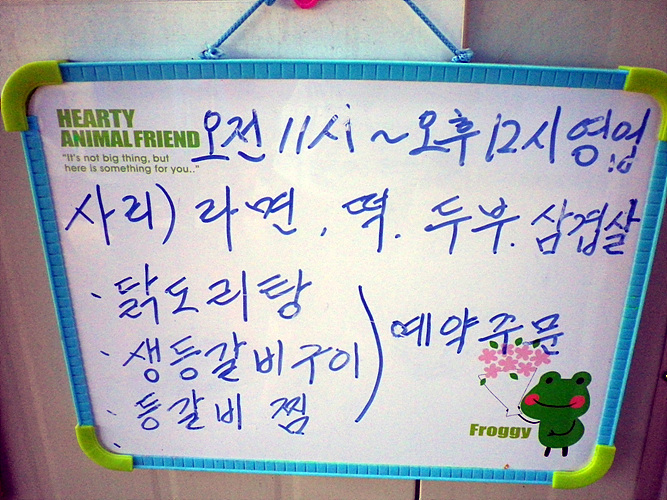 HEARTY
ANIMAL FRIEND
"It's not big thing, but
here is something for you.."
오전 11시 ~ 오후 12시 영업
사리) 라면, 떡. 두부. 삼겹살
· 닭도리탕
· 생등갈비구이
· 등갈비 찜
) 예약주문
Froggy